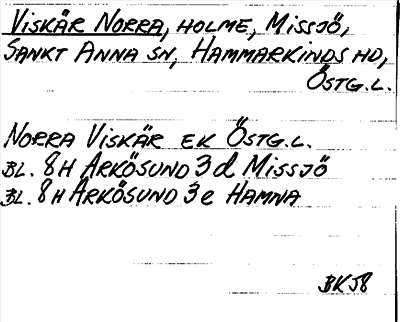 VISKÄR NORRA, HOLME, MISSJÖ,
SANKT ANNA SN, HAMMARKINDS HD,
ÖSTG.L.
NORRA VISKÄR EK ÖSTG.L.
BL. 8H ARKÖSUND 3d MISSJÖ
BL. 8H ARKÖSUND 3e HAMNA
BKJ8